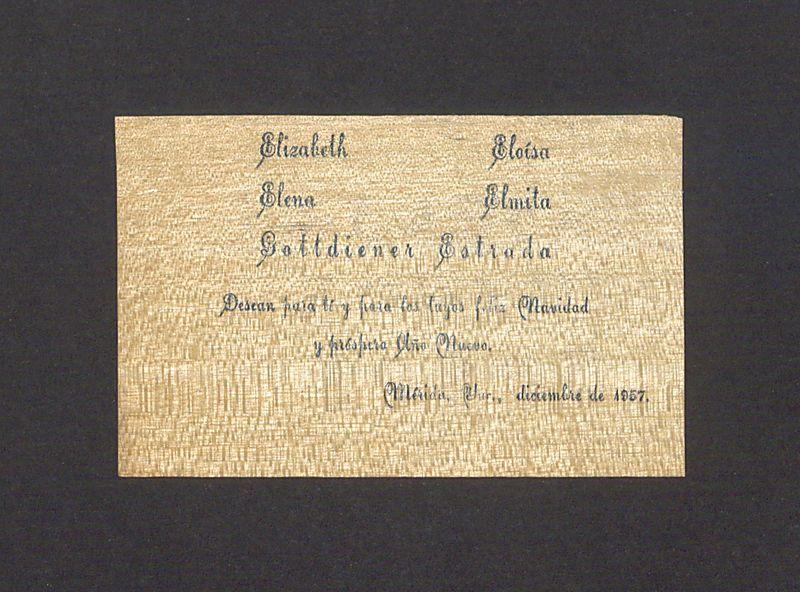 Elizabeth Eloísa
Elena Elmita
Gottdiener Estrada
Desean para tí y para los tuyos feliz Navidad
y próspero Año Nuevo.
Mérida, Yuc., diciembre de 1957.